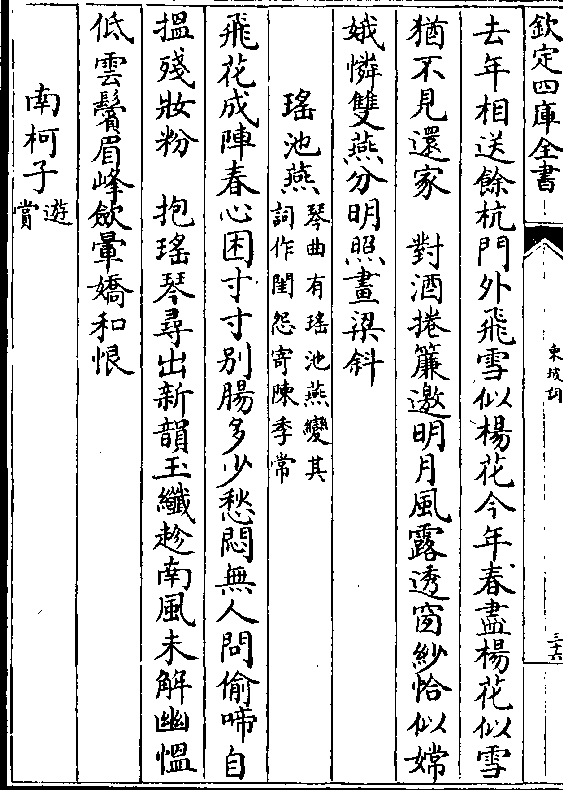 欽定四庫全書
東坡詞
三十六
去年相送餘杭門外飛雪似楊花今年春盡楊花似雪
猶不見還家　對酒捲簾邀明月風露透窗紗恰似嫦
娥憐雙燕分明照畫梁斜
瑤池燕琴曲有瑤池燕變其
詞作閨怨寄陳季常
飛花成陣春心困寸寸别腸多少愁悶無人問偷啼自
搵殘妝粉　抱瑤琴尋出新韻玉纖趁南風未解幽愠
低雲鬟眉峰斂暈嬌和恨
南柯子遊
賞